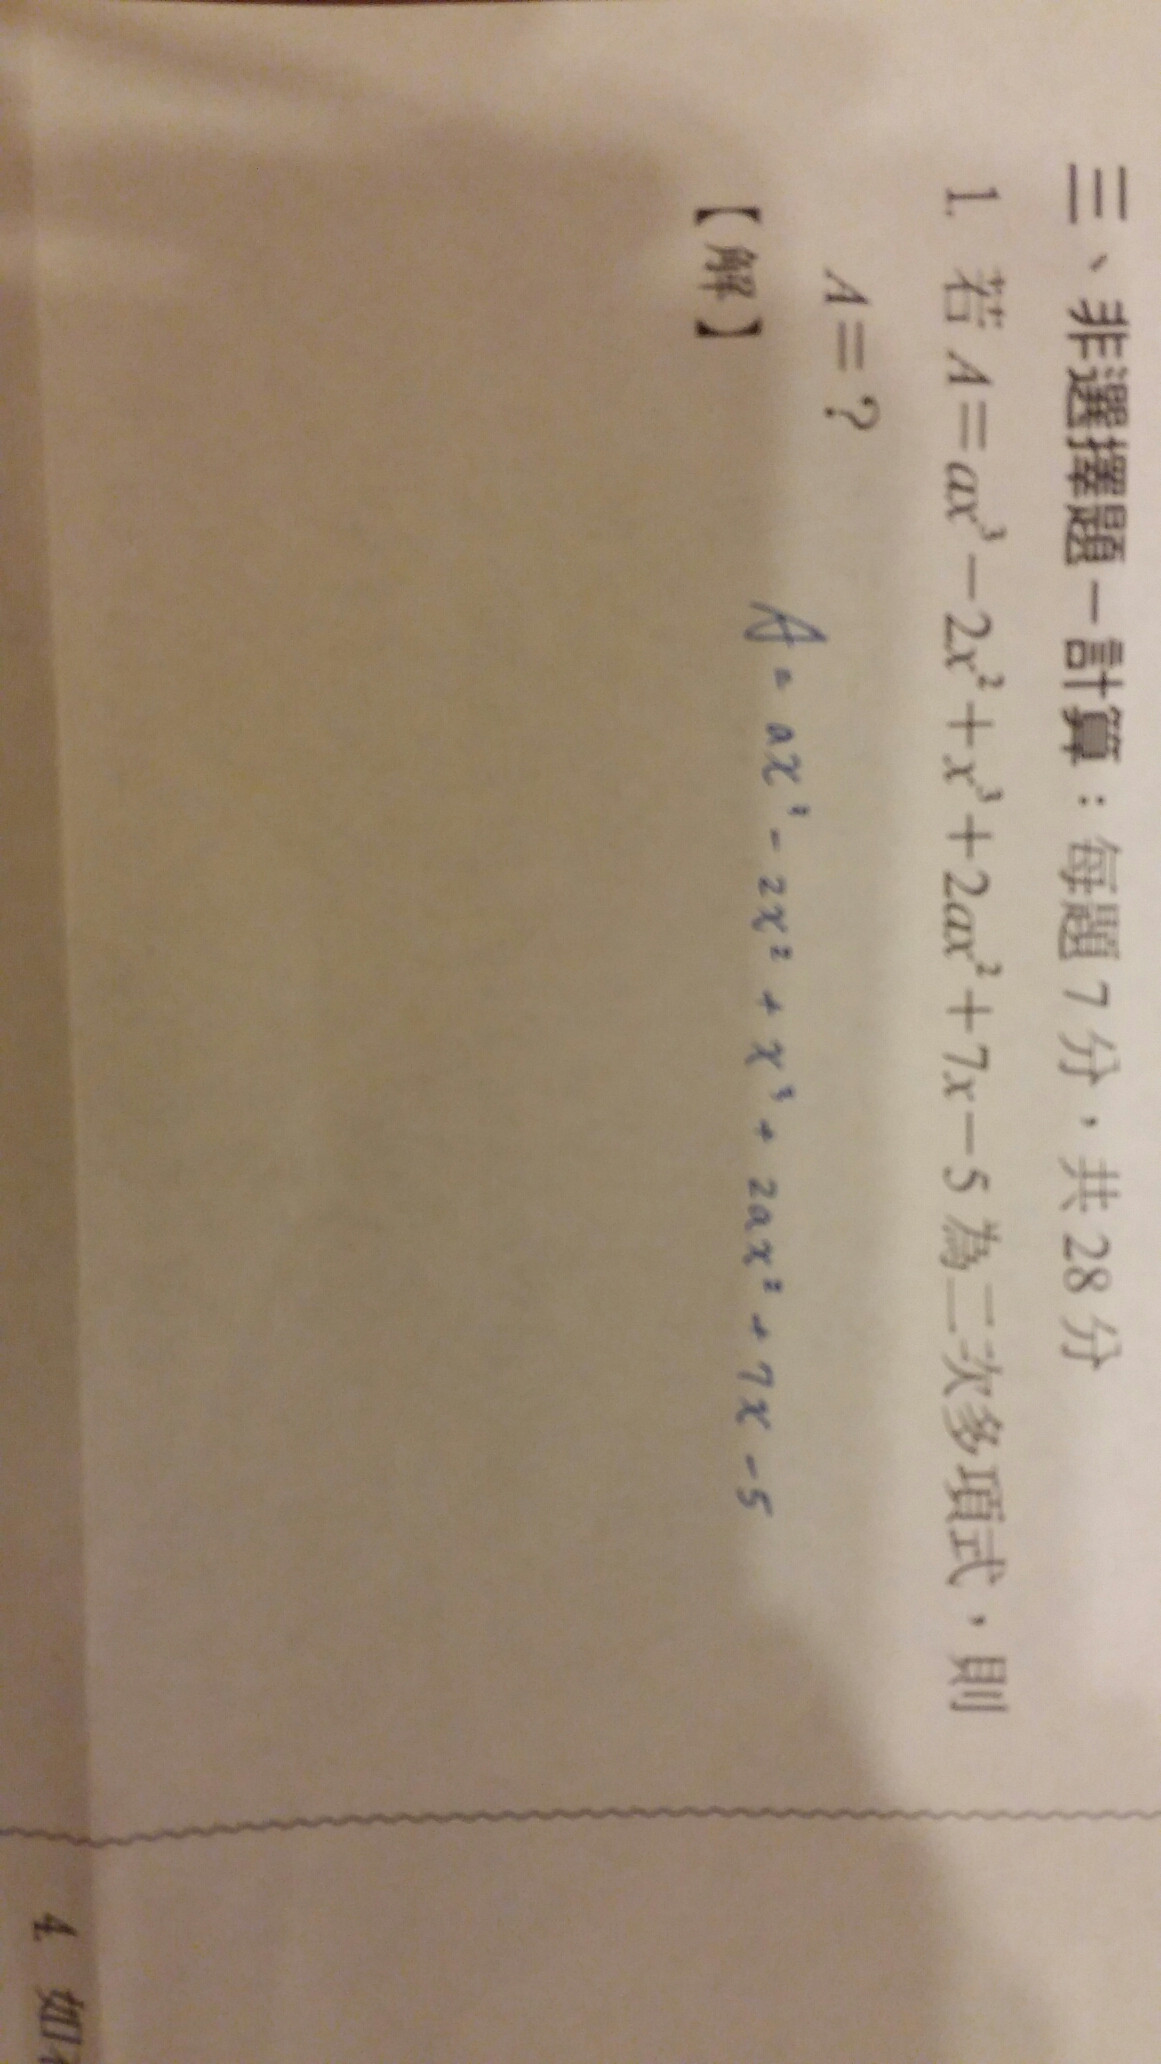 三、非選擇題－計算：每題 7 分，共 28 分
1. 若 A＝ax³－2x²＋x³＋2ax²＋7x－5 為二次多項式，則
A＝？
【解】
A = ax³ - 2x² + x³ + 2ax² + 7x - 5
4. 如